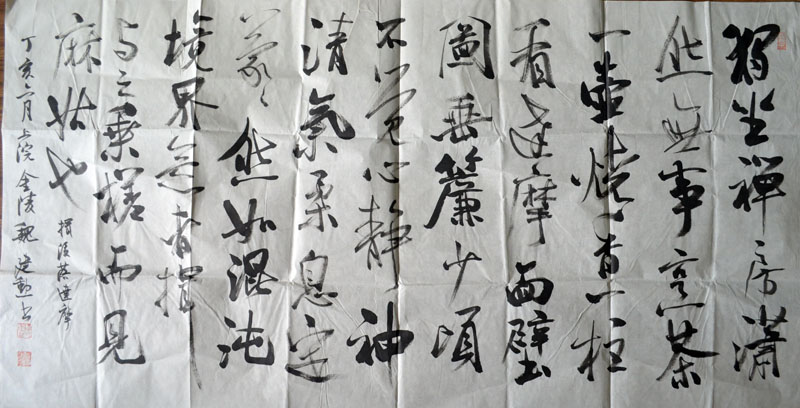 独坐禅房潇
然无事烹茶
一壶烧香一柱
看达摩面壁
图垂帘少顷
不觉心静神
清气柔息定
蒙蒙然如混沌
境界意者揖
与之乘槎而见
麻姑也
丁亥六月上浣金陵魏